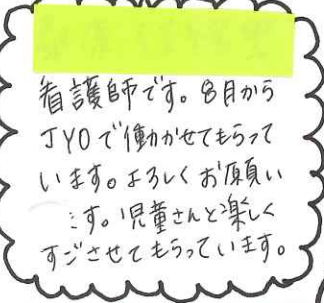 看護師です。8月から
JYOで働かせてもらって
います。よろしくお願い
す。児童さんと楽しく
すごさせてもらっています。